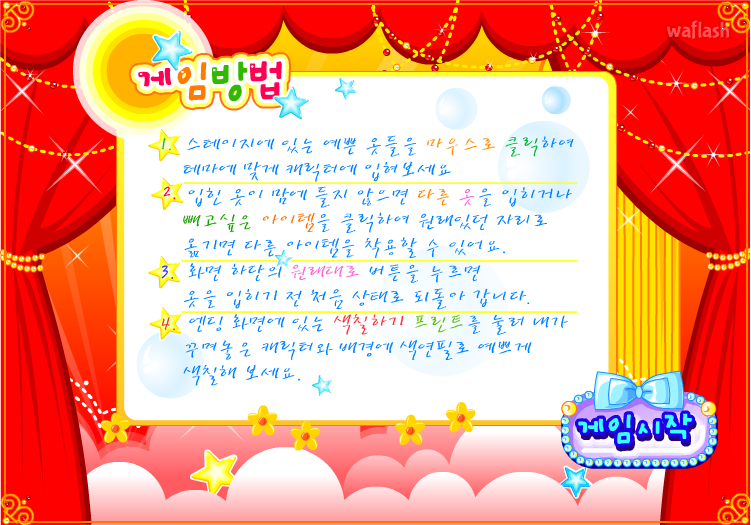 waflash
게임방법
1. 스테이지에 있는 예쁜 옷들을 마우스로 클릭하여
테마에 맞게 캐릭터에 입혀보세요
2. 입힌 옷이 맘에 들지 않으면 다른 옷을 입히거나
빼고싶은 아이템을 클릭하여 원래있던 자리로
옮기면 다른 아이템을 착용할 수 있어요.
3. 화면 하단의 원래대로 버튼을 누르면
옷을 입히기 전 처음 상태로 되돌아 갑니다.
4. 엔딩 화면에 있는 색칠하기 프린트를 눌러 내가
꾸며놓은 캐릭터와 배경에 색연필로 예쁘게
색칠해 보세요.
게임시작